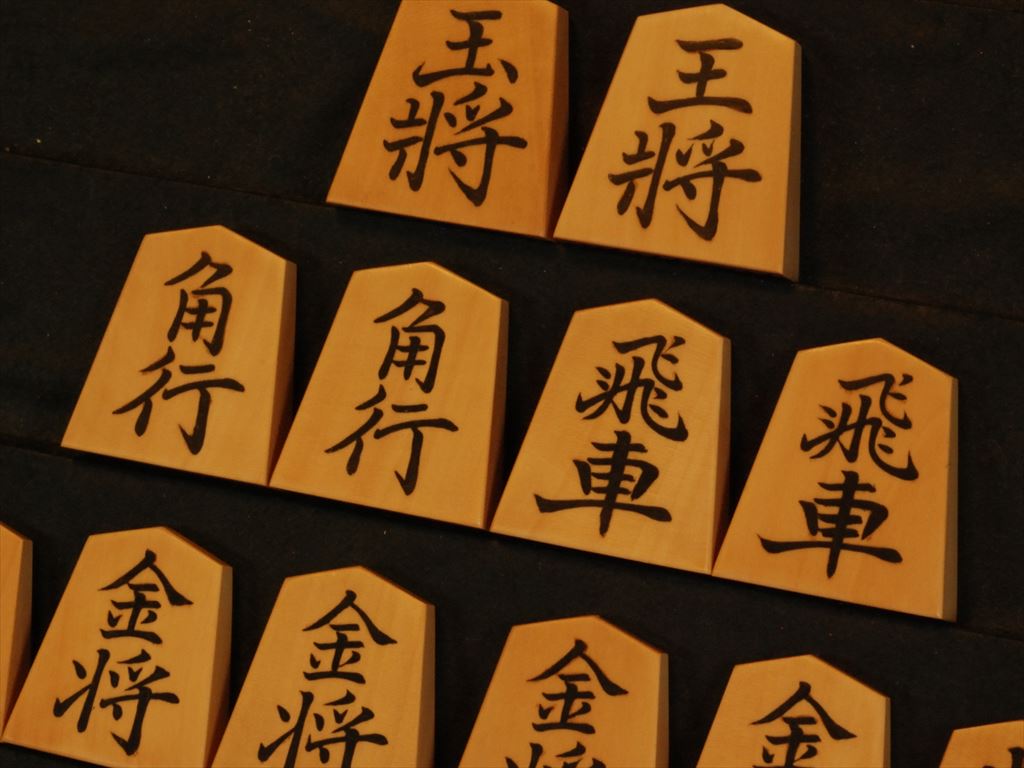 玉將 王將
角行 角行 飛車 飛車
金将 金将 金将 金